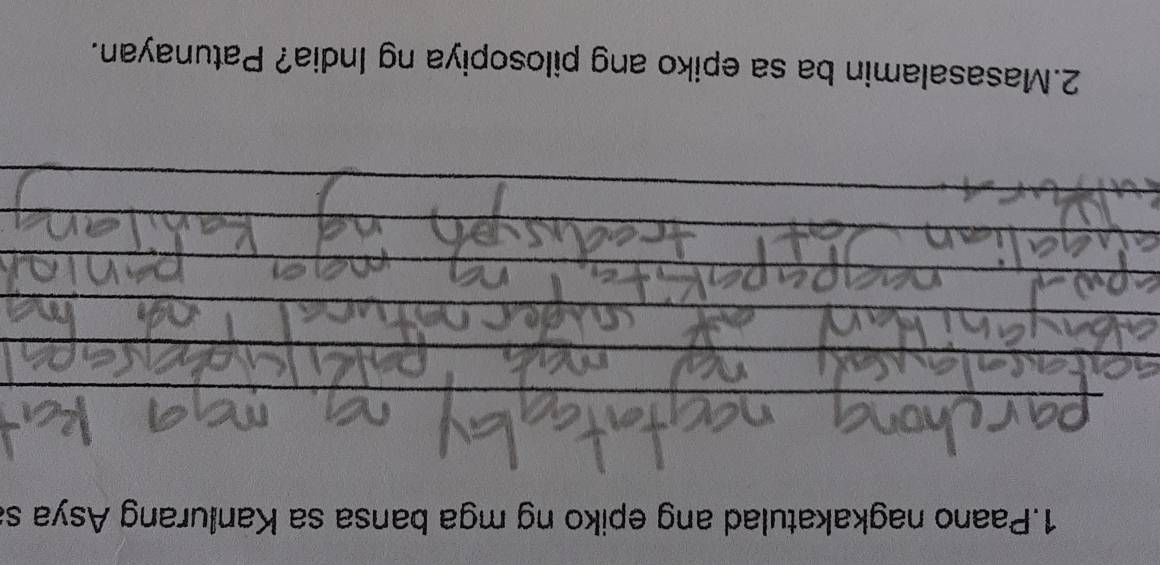 1.Paano nagkakatulad ang epiko ng mga bansa sa Kanlurang Asya sa
parehong nagtataglay ng mga kat
ng mga pakikipagsapal
ay supernatural na
nagpapakita ng mga paniniw
at tradisyon ng kanilang
kultura.
2.Masasalamin ba sa epiko ang pilosopiya ng India? Patunayan.